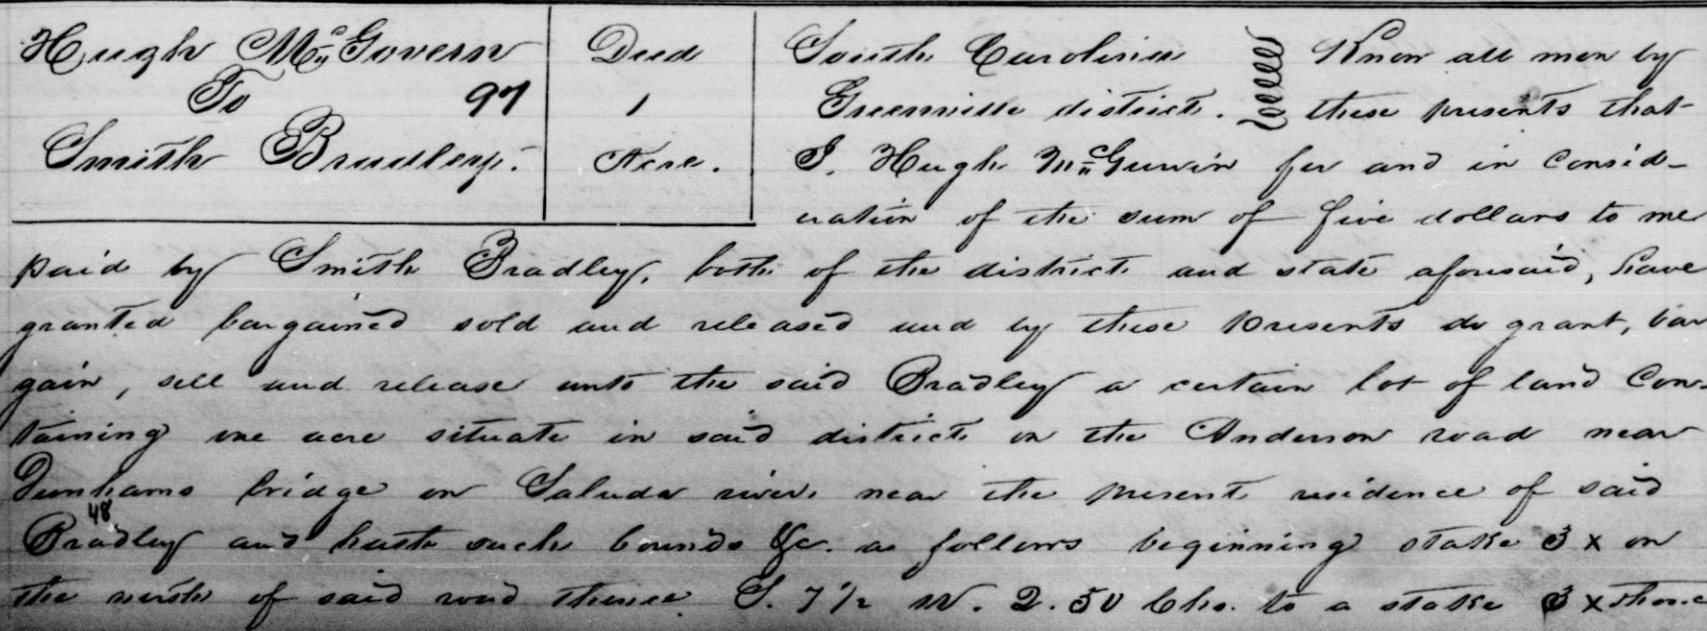 Hugh McGovern
To 97
Smith Bradley.
Deed
1
Acre.
South Carolina
Greenville district.
Know all men by
these presents that
I. Hugh McGuvin for and in consid-
eration of the sum of five dollars to me
paid by Smith Bradley, both of the district and state aforesaid, have
granted bargained sold and released and by these presents do grant, bar
gain, sell and release unto the said Bradley a certain lot of land Con-
taining one acre situate in said district on the Anderson road near
Dunhams bridge on Saluda river near the present residence of said
48
Bradley and hath such bounds &c. as follows beginning stake 3 x on
the north of said road thence S. 7 1/2 W. 2.50 Chs. to a stake 3 x thence